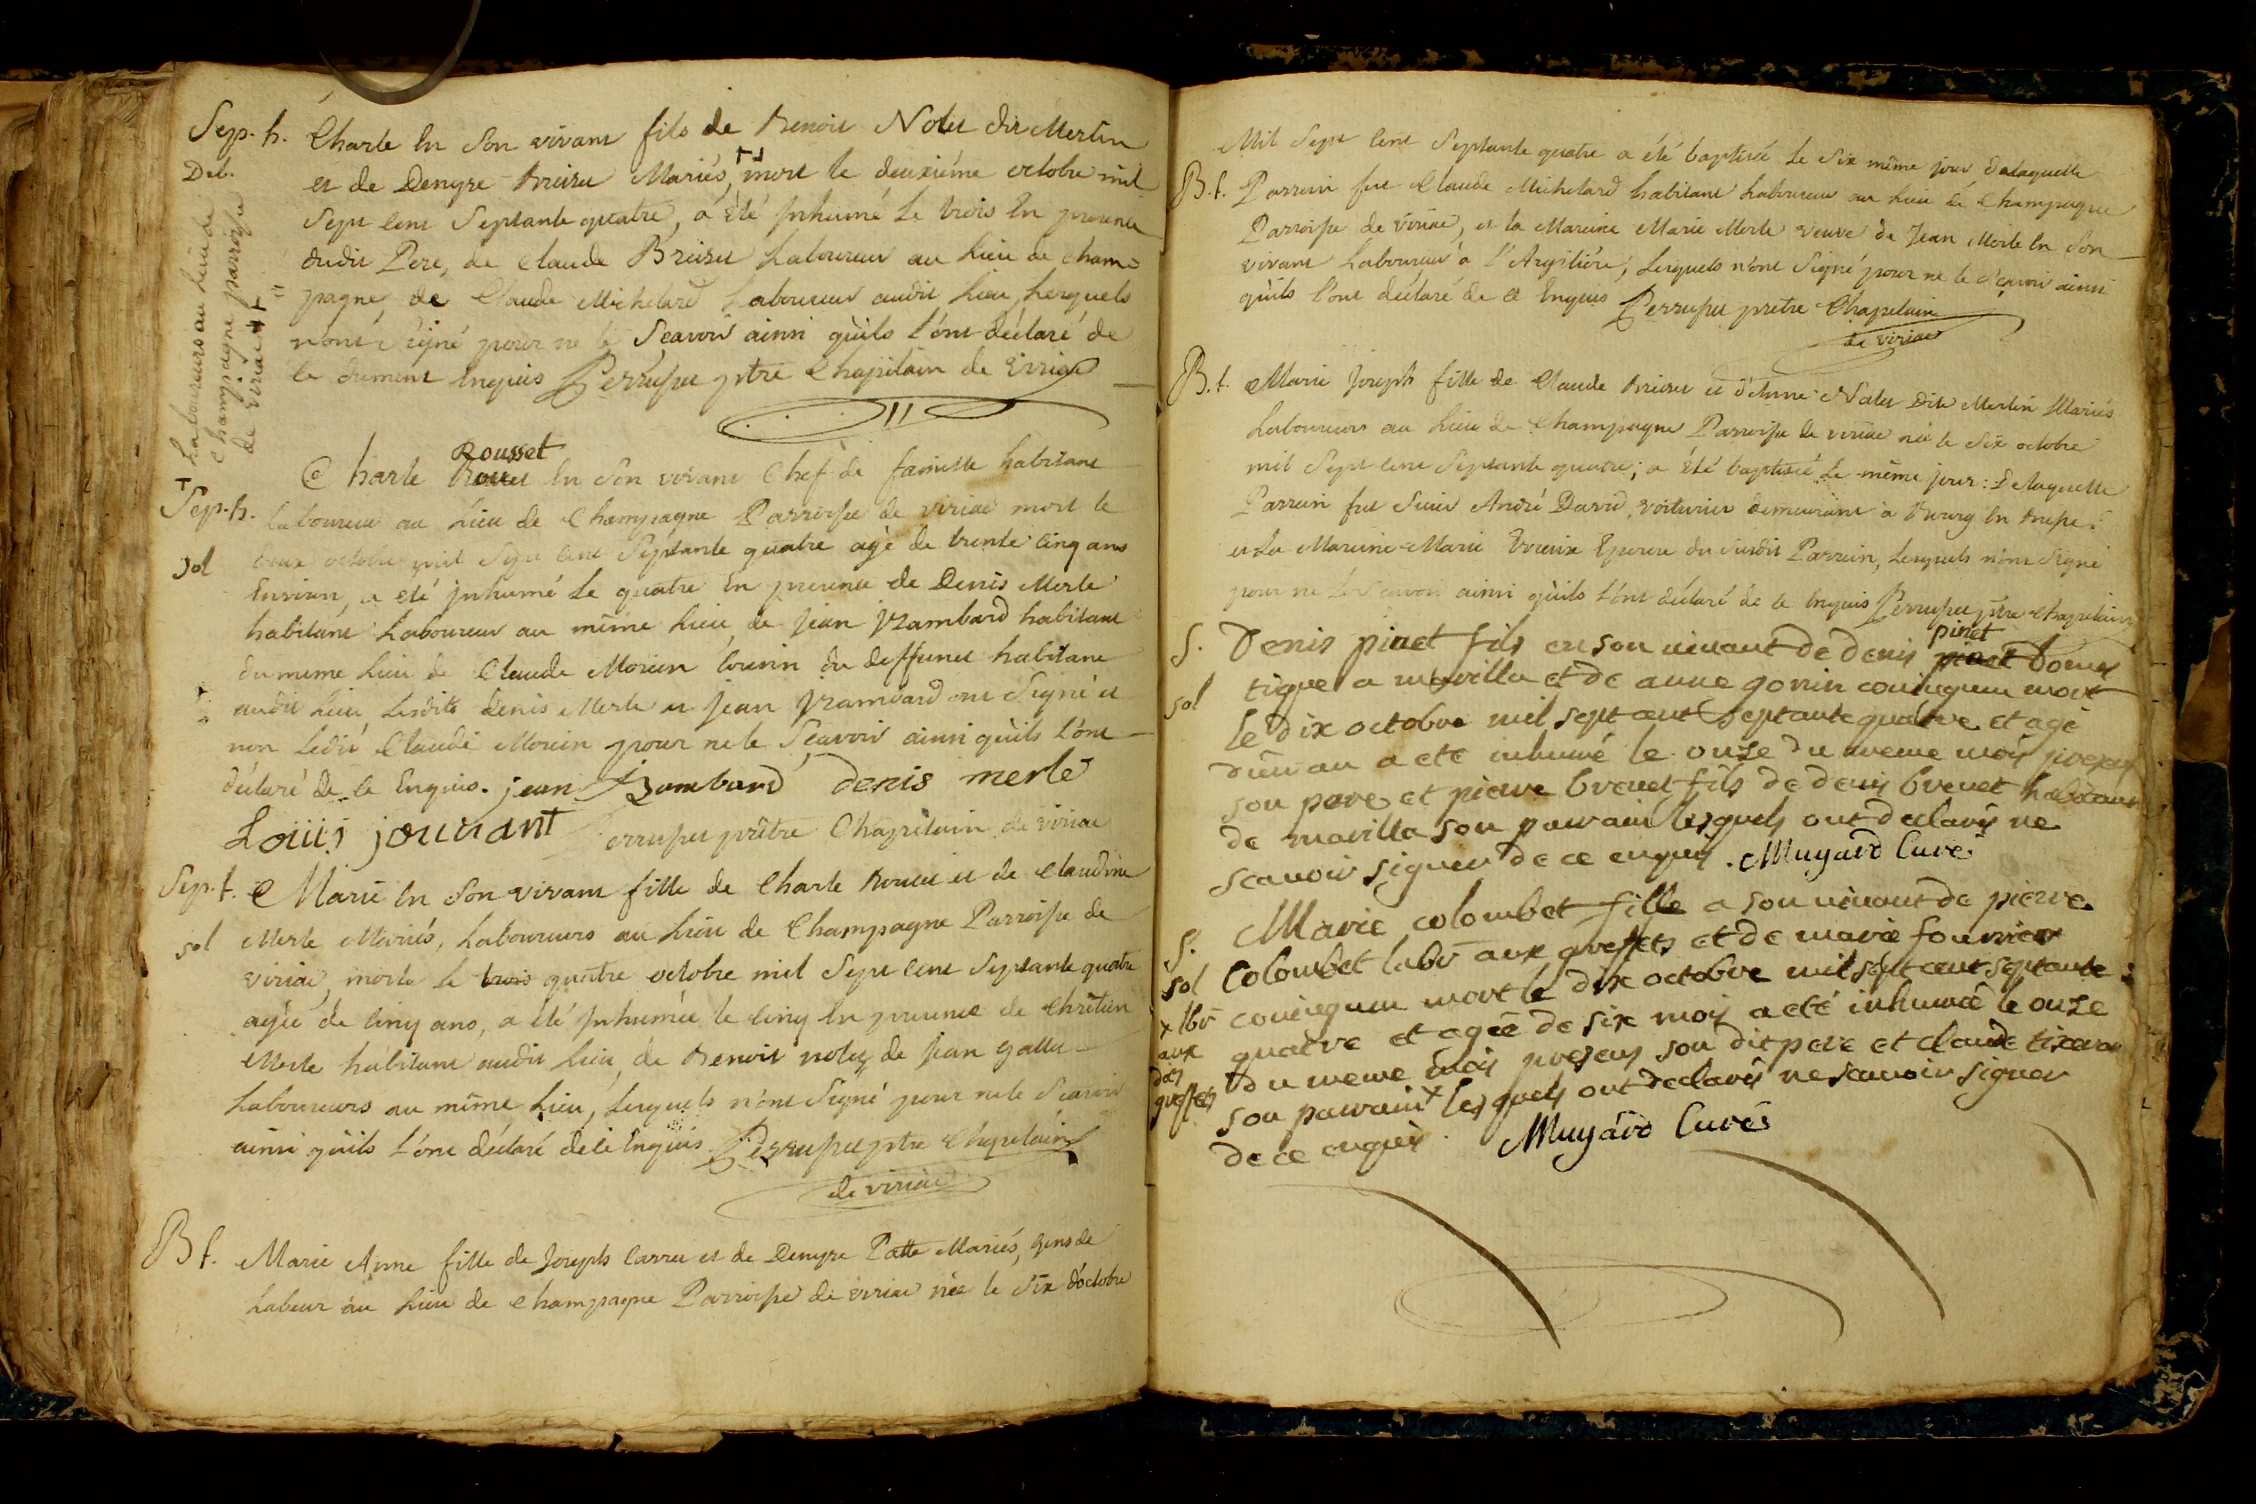 Sep. h. Charle En Son vivant fils de Benoit Nolet dit Merlin
Deb. et de Denyse Brevet Mariés, mort le deuxiéme octobre mil
Sept cent Septante quatre, a été Inhumé Le trois En presence
dudit Pere, de Claude Brevet Laboureur au Lieu de Cham=
pagne, de Claude Michelard Laboureur audit Lieu, Lesquels
n'ont Signé pour ne le Sçavoir ainsi qu'ils l'ont déclaré de
ce dument Enquis Perruset ptre Chapitain de Viriac
Laboureurs au Lieu de
Champagne parroisse
de Viriac
Rousset
Charle En Son vivant Chef de famille habitant
Sep. h. Laboureur au Lieu de Champagne Parroisse de viriac mort le
sol deux octobre mil Sept cent Septante quatre agé de trente cinq ans
Environ, a eté Inhumé Le quatre En presence de Denis Merle
habitant Laboureur au même Lieu, de Jean Rambard habitant
du meme Lieu de Claude Morin Cousin du deffunct habitant
audit Lieu, Lesdits Denis Merle et Jean Rambard ont Signé et
non Ledit Claude Morin pour ne le Sçavoir ainsi qu'ils l'ont
déclaré de ce Enquis. jean Rambard denis merle
Loüis jouvant Perruset prêtre Chapitain de viriac
Sep. f. Marie En Son vivant fille de Charle et de Claudine
sol Merle Mariés, Laboureurs au Lieu de Champagne Parroisse de
viriac, morte Le trois quatre octobre mil Sept cent Septante quatre
agée de cinq ans, a été Inhumée le cinq En presence de Chrêtien
Merle habitant audit Lieu, de Benoit nolet de Jean gallet
Laboureurs au même Lieu, Lesquels n'ont Signé pour ne le Scavoir
ainsi qu'ils l'ont déclaré de ce Enquis Perruset ptre Chapitain
de viriac
B f. Marie Anne fille de Joseph Carret et de Denyse Patte Mariés, gens de
Labeur au Lieu de Champagne Parroisse de viriac née le Six d'octobre
Mil Sept Cent Septante quatre a été baptisée Le Six même jour delaquelle
B. f. Parrein fut Claude Michelard habitant Laboureur au Lieu de Champagne
Parroisse de viriac, et la Mareine Marie Merle veuve de Jean Merle En Son
vivant Laboureur à l'Argiliére, Lesquels n'ont Signé pour ne le Sçavoir ainsi
qu'ils l'ont déclaré de ce Enquis Perruset prêtre Chapitain
de viriac
B. f. Marie Joseph fille de Claude Brevet et d'Anne Nolet Dite Merlin Mariés
Laboureurs au Lieu de Champagne Parroisse de viriac née le Six octobre
mil Sept cent Septante quatre; a été baptisée Le même jour: Delaquelle
Parrein fut Sieur André David, voiturier demeurant à Bourg En Bresse
et La Mareine Marie Epouse du Susdit Parrein, Lesquels n'ont Signé
pour ne Le Sçavoir ainsi qu'ils l'ont déclaré de ce Enquis Perruset ptre Chapitain
pinet
S. Denis pinet fils en son vivant de denis pinet domes
sol tique a marvilla et de anne gonin coniugum mort
le dix octobre mil sept cent septante quatre et agé
d'un an a eté inhumé le onze du meme mois presens
son pere et pierre brevet fils de denis brevet habitant
de marilla son parrain lesquels ont declarés ne
scavoir signer de ce enquis. Mugard Curé
S. Marie colombet fille a son vivant de pierre
sol Colombet labr aux greffets et de marie fournier
x lbr coniugum mort le dix octobre mil sept cent septante
aux quatre et agée de six mois a eté inhumée le onze
des du meme mois presens son dit pere et claude tixeran
greffets son parrain x lesquels ont declarés ne scavoir signer
de ce enquis. Mugard Curé